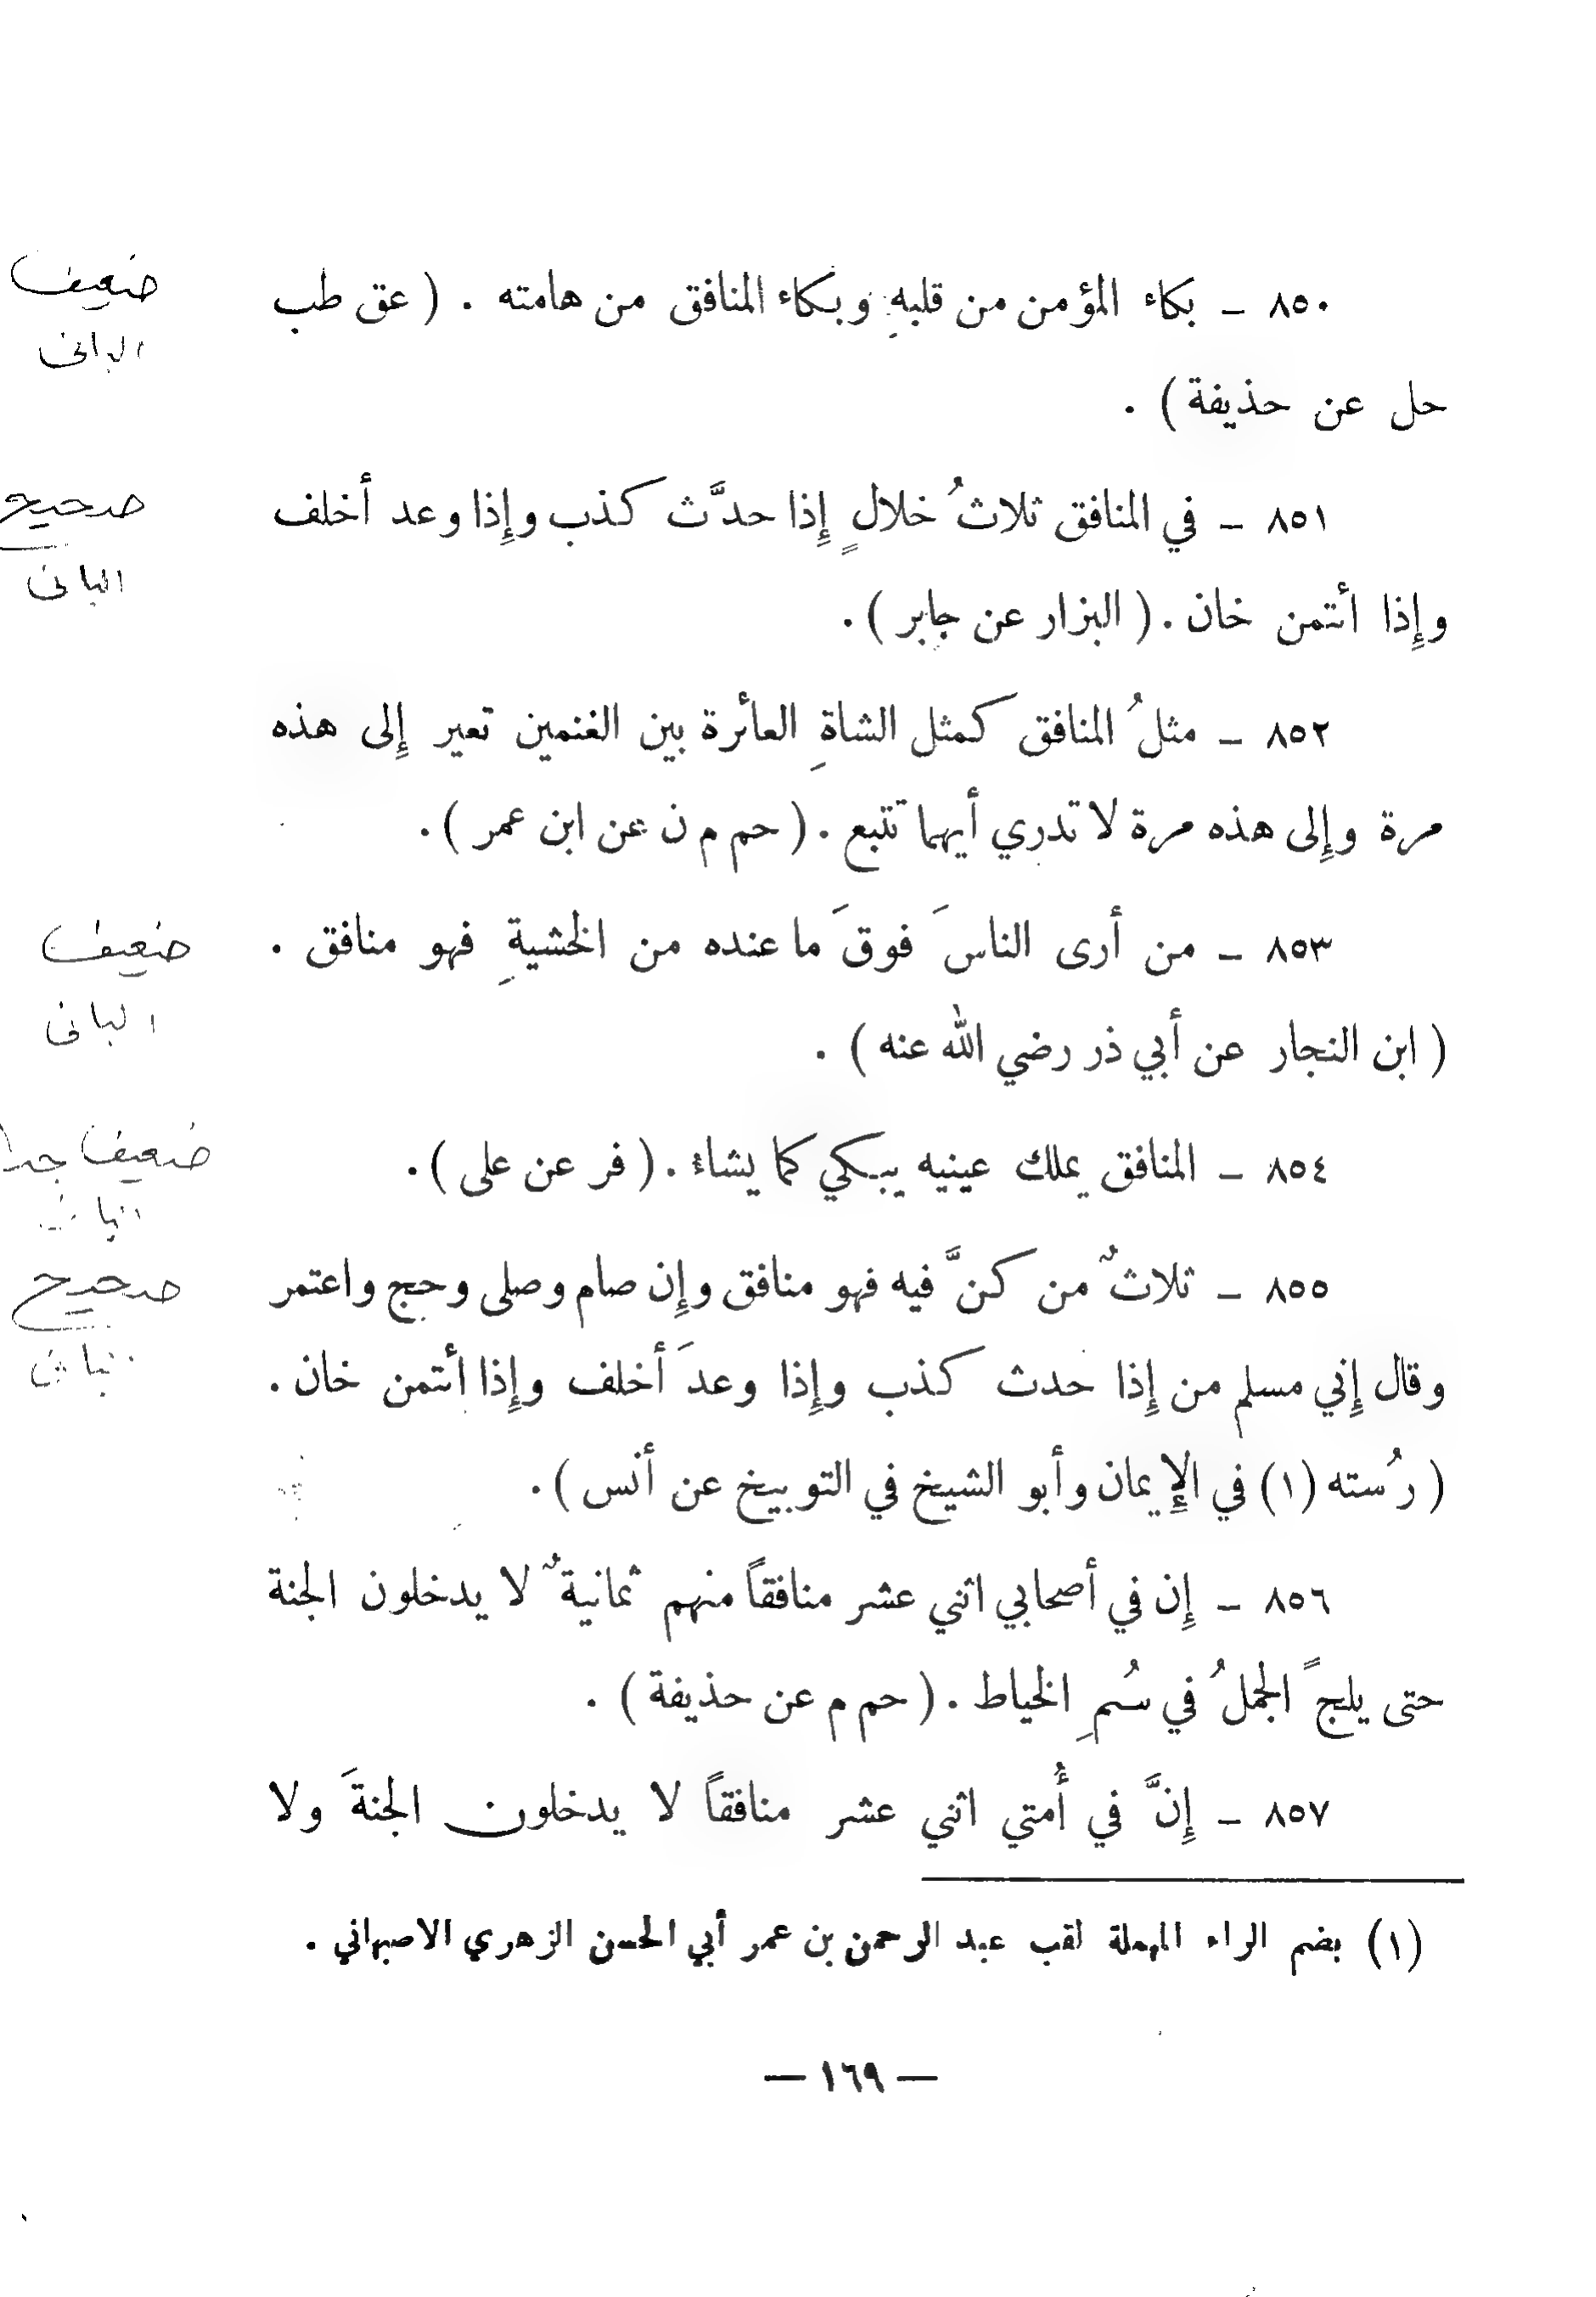 ٨٥٠ ـ بكاء المؤمن من قلبهِ وبكاء المنافق من هامته . ( عق طب
ضعيف
البانى
حل عن حذيفة ) .
٨٥١ ـ في المنافق ثلاثُ خلالٍ إِذا حدَّث كذب وإِذا وعد أخلف
صحيح
البانى
وإِذا أئتمن خان . ( البزار عن جابر ) .
٨٥٢ ـ مثلُ المنافق كمثل الشاةِ العائرة بين الغنمين تعير إِلى هذه
مرة وإِلى هذه مرة لا تدري أيهما تتبع . ( حم م ن عن ابن عمر ) .
٨٥٣ ـ من أرى الناسَ فوقَ ما عنده من الخشيةِ فهو منافق .
ضعيف
البانى
( ابن النجار عن أبي ذر رضي الله عنه ) .
٨٥٤ ـ المنافق يملك عينيه يبكي كما يشاء . ( فر عن على ) .
ضعيف جدا
٨٥٥ ـ ثلاثٌ من كنَّ فيه فهو منافق وإِن صام وصلى وحج واعتمر
صحيح
وقال إِني مسلم من إِذا حدث كذب وإِذا وعدَ أخلف وإِذا أئتمن خان .
( رُسته (١) في الإِيمان وأبو الشيخ في التوبيخ عن أنس ) .
٨٥٦ ـ إِن في أصحابي اثني عشر منافقاً منهم ثمانيةٌ لا يدخلون الجنة
حتى يلجً الجملُ في سُمِ الخياط . ( حم م عن حذيفة ) .
٨٥٧ ـ إِنَّ في أُمتي اثني عشر منافقاً لا يدخلون الجنةَ ولا
(١) بضم الراء المهملة لقب عبد الرحمن بن عمر أبي الحسن الزهري الاصبهاني .
— ١٦٩ —